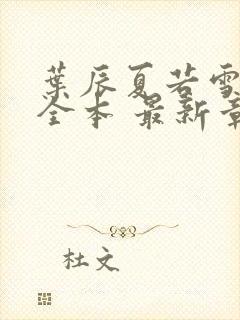 葉辰夏若雪
全本 最新章
杜文